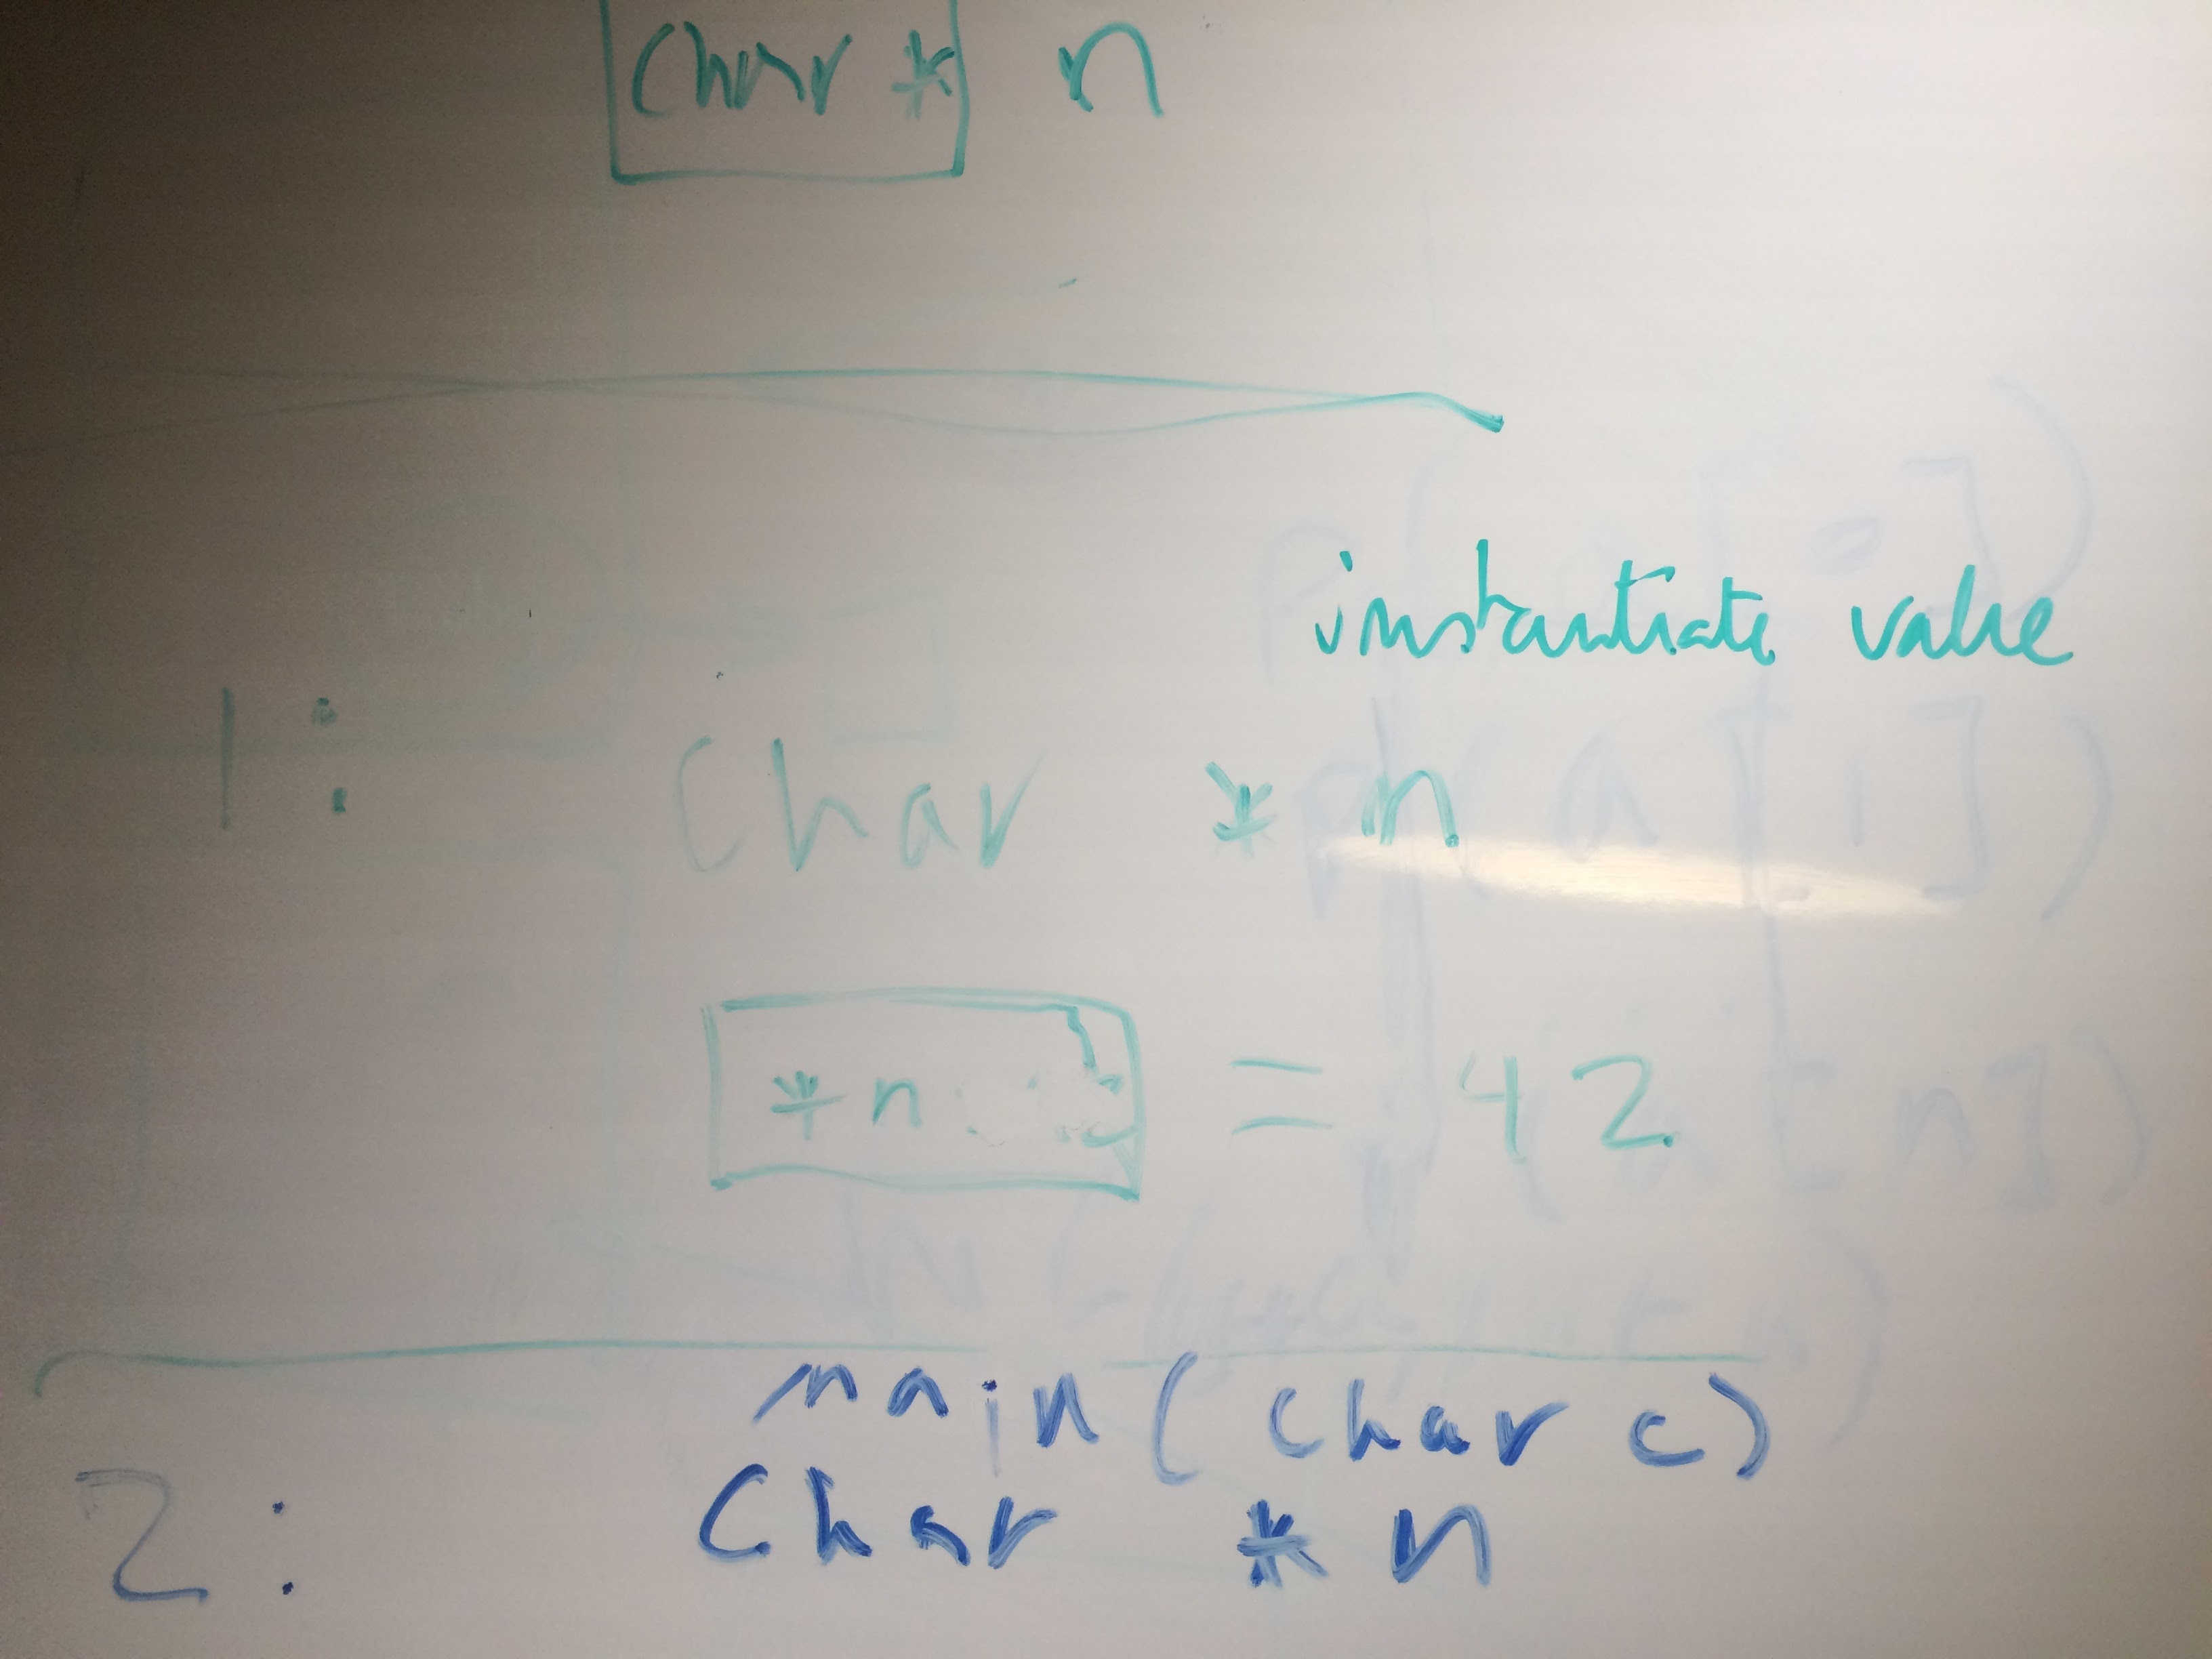 char * n
instantiate value
1: char * n
*n = 42
main ( char c )
2: char * n